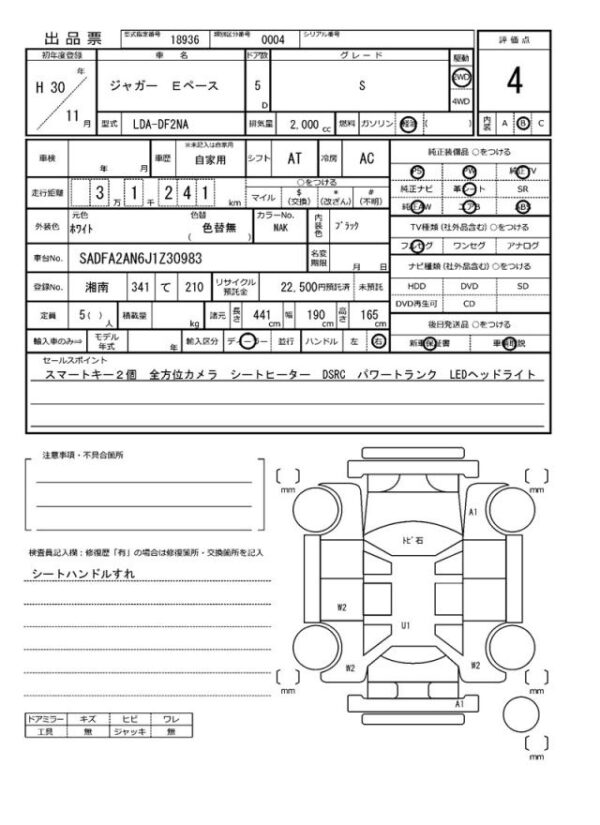 出品票 型式指定番号 18936 類別区分番号 0004 シリアル番号
評価点
4
内装 A B C
初年度登録 車名 ドア数 グレード 駆動
H 30 年 11 月 ジャガー Eペース 5 D S 2WD 4WD
型式 LDA-DF2NA 排気量 2,000 cc 燃料 ガソリン 軽油 ( )
車検 年 月 車歴 ※未記入は自家用 自家用 シフト AT 冷房 AC
走行距離 3 万 1 千 2 4 1 km ○をつける マイル $ (交換) * (改ざん) # (不明)
外装色 元色 ホワイト 色替 ( 色替無 ) カラーNo. NAK 内装色 ブラック
車台No. SADFA2AN6J1Z30983 名変期限 月 日
登録No. 湘南 341 て 210 リサイクル預託金 22,500円預託済 未預託
定員 5( ) 人 積載量 kg 諸元 長さ 441 cm 幅 190 cm 高さ 165 cm
輸入車のみ⇒ モデル年式 年 輸入区分 ディーラー 並行 ハンドル 左 右
純正装備品 ○をつける
PS PW 純正TV
純正ナビ 革シート SR
純正AW エアB ABS
TV種類(社外品含む) ○をつける
フルセグ ワンセグ アナログ
ナビ種類(社外品含む)○をつける
HDD DVD SD
DVD再生可 CD
後日発送品 ○をつける
新車保証書 車輌取説
セールスポイント
スマートキー2個 全方位カメラ シートヒーター DSRC パワートランク LEDヘッドライト
注意事項・不具合箇所
検査員記入欄:修復歴「有」の場合は修復箇所・交換箇所を記入
シートハンドルすれ
ドアミラー キズ ヒビ ワレ
工具 無 ジャッキ 無
[ ] mm
[ ] mm
A1
トビ石
W2
U1
W2 W2
[ ] mm
[ ] mm
A1
[ ] mm